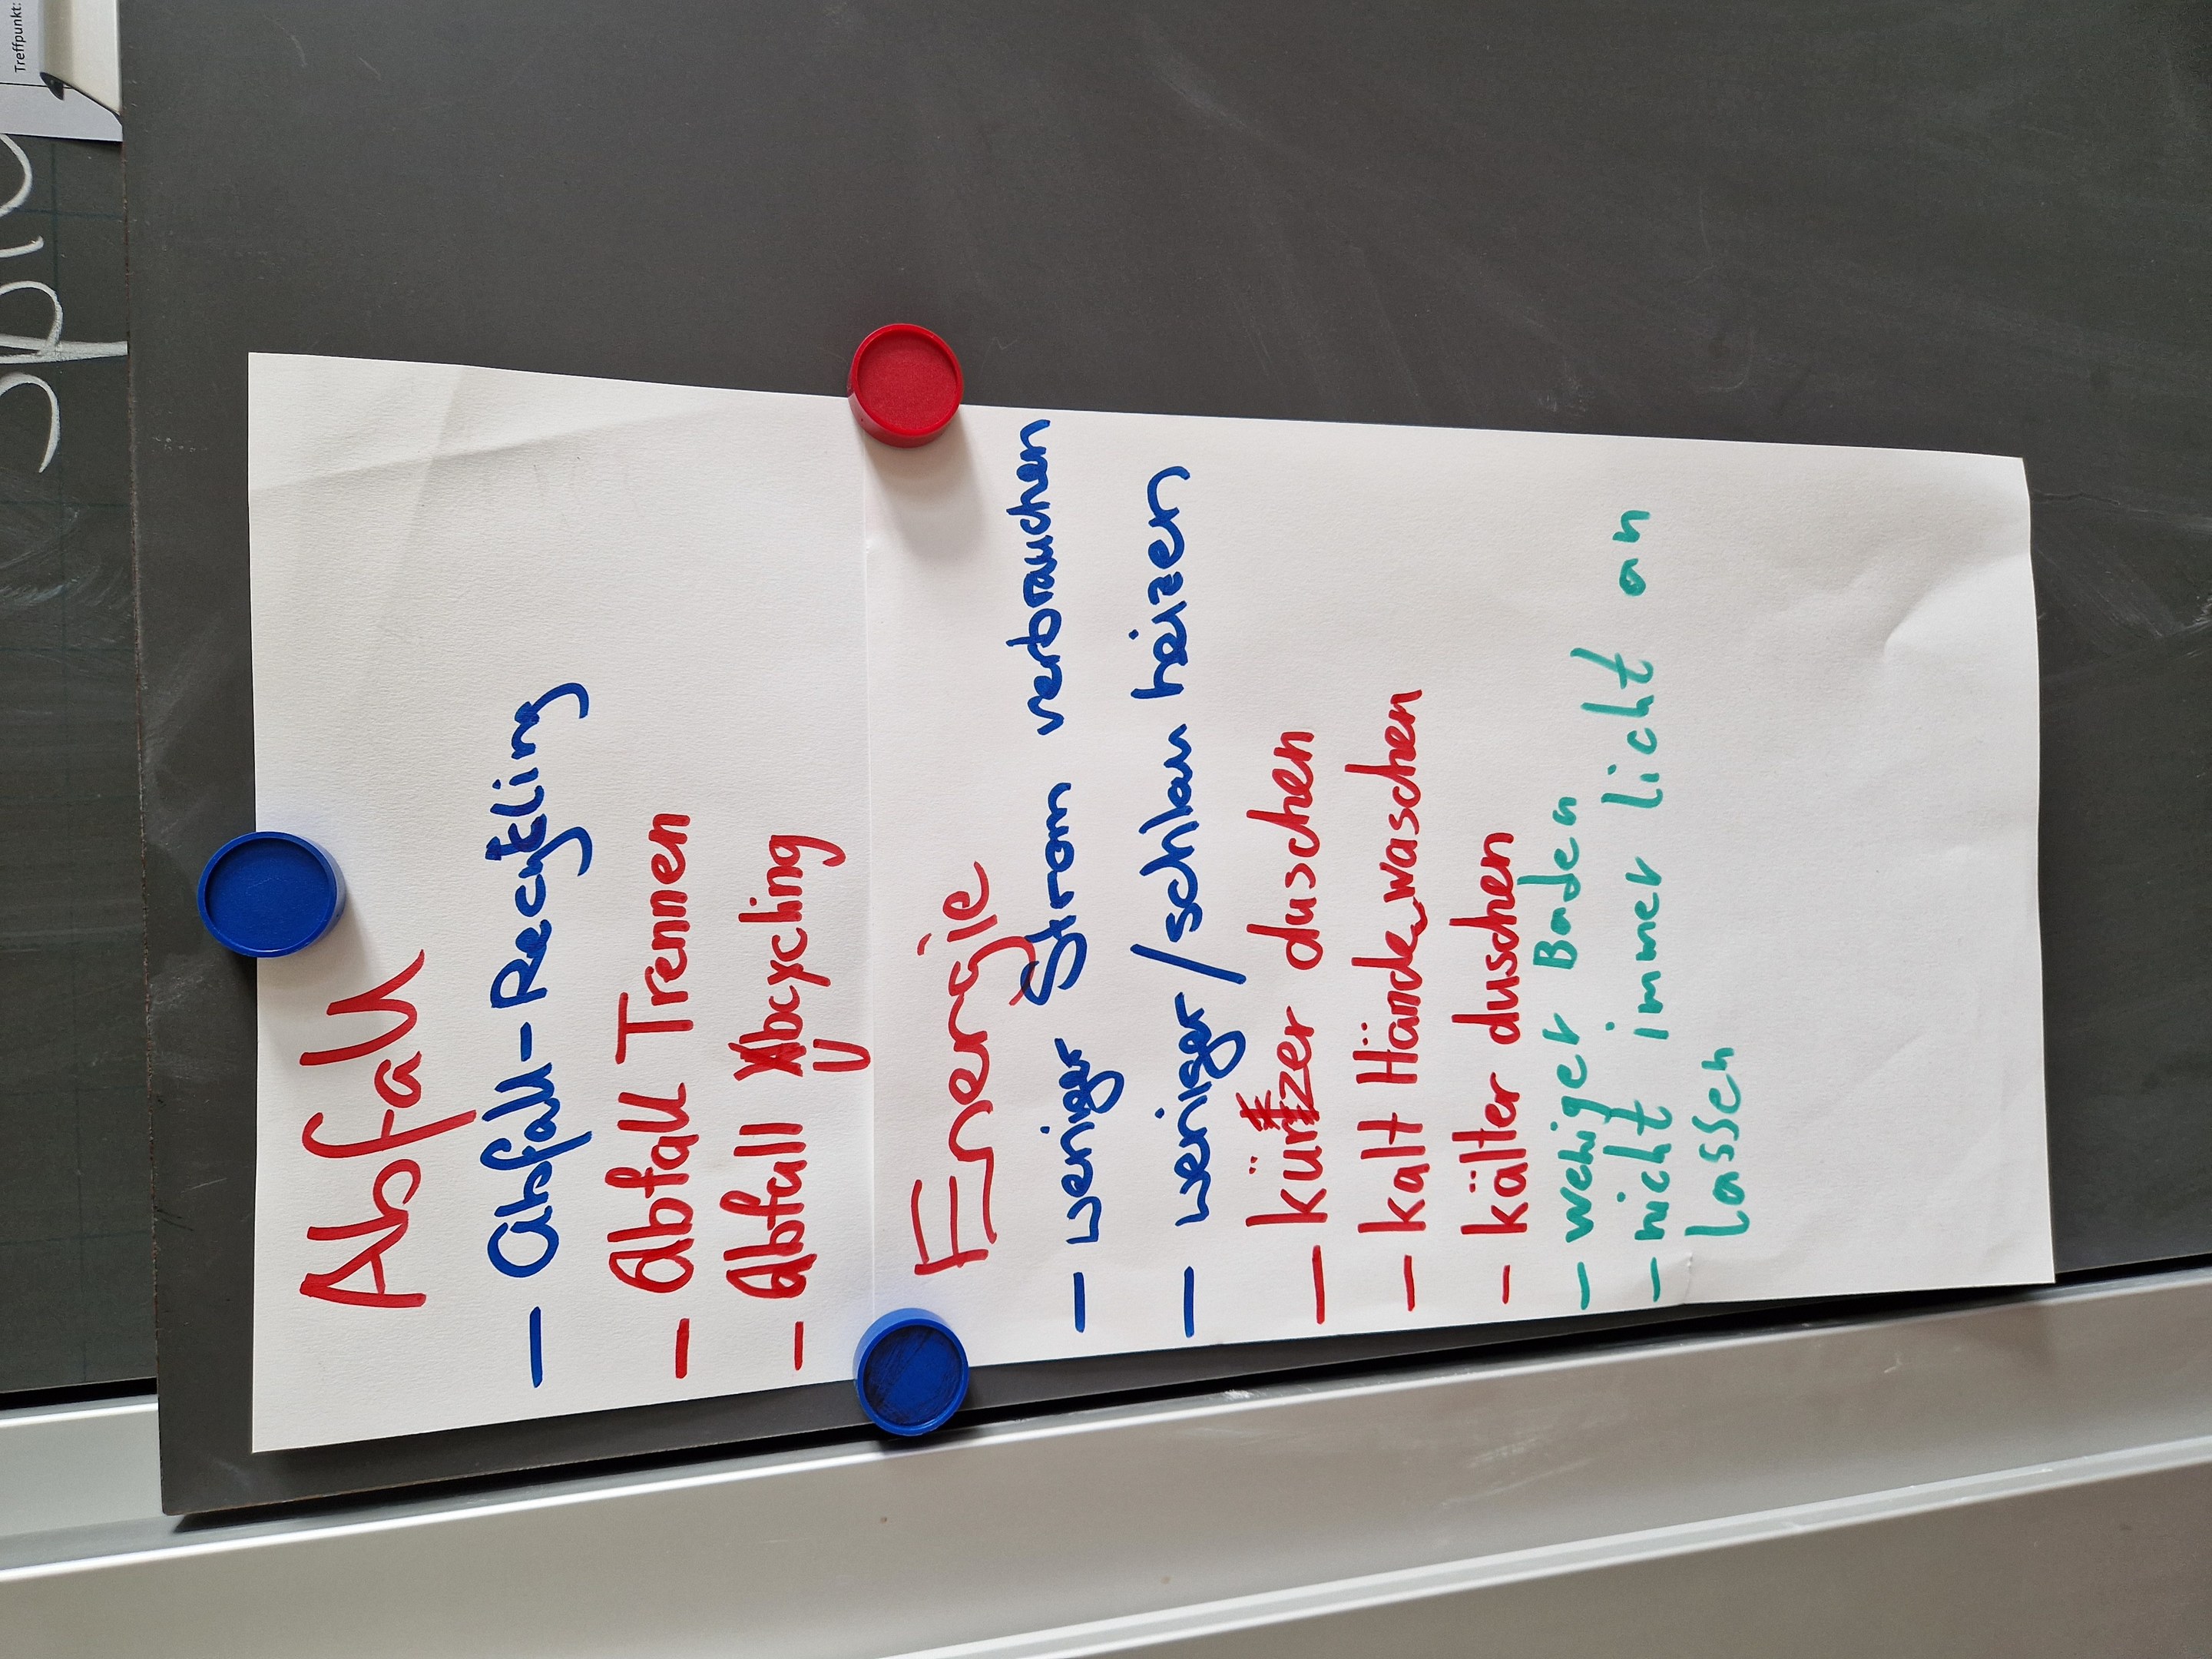 Treffpunkt:
Abfall
- Abfall-Recycling
- Abfall Trennen
- Abfall Ubcycling
Energie
- weniger Strom verbrauchen
- weniger/schlau heizen
- kürzer duschen
- kalt Hände waschen
- kälter duschen
- weniger Baden
- nicht immer licht an
lassen